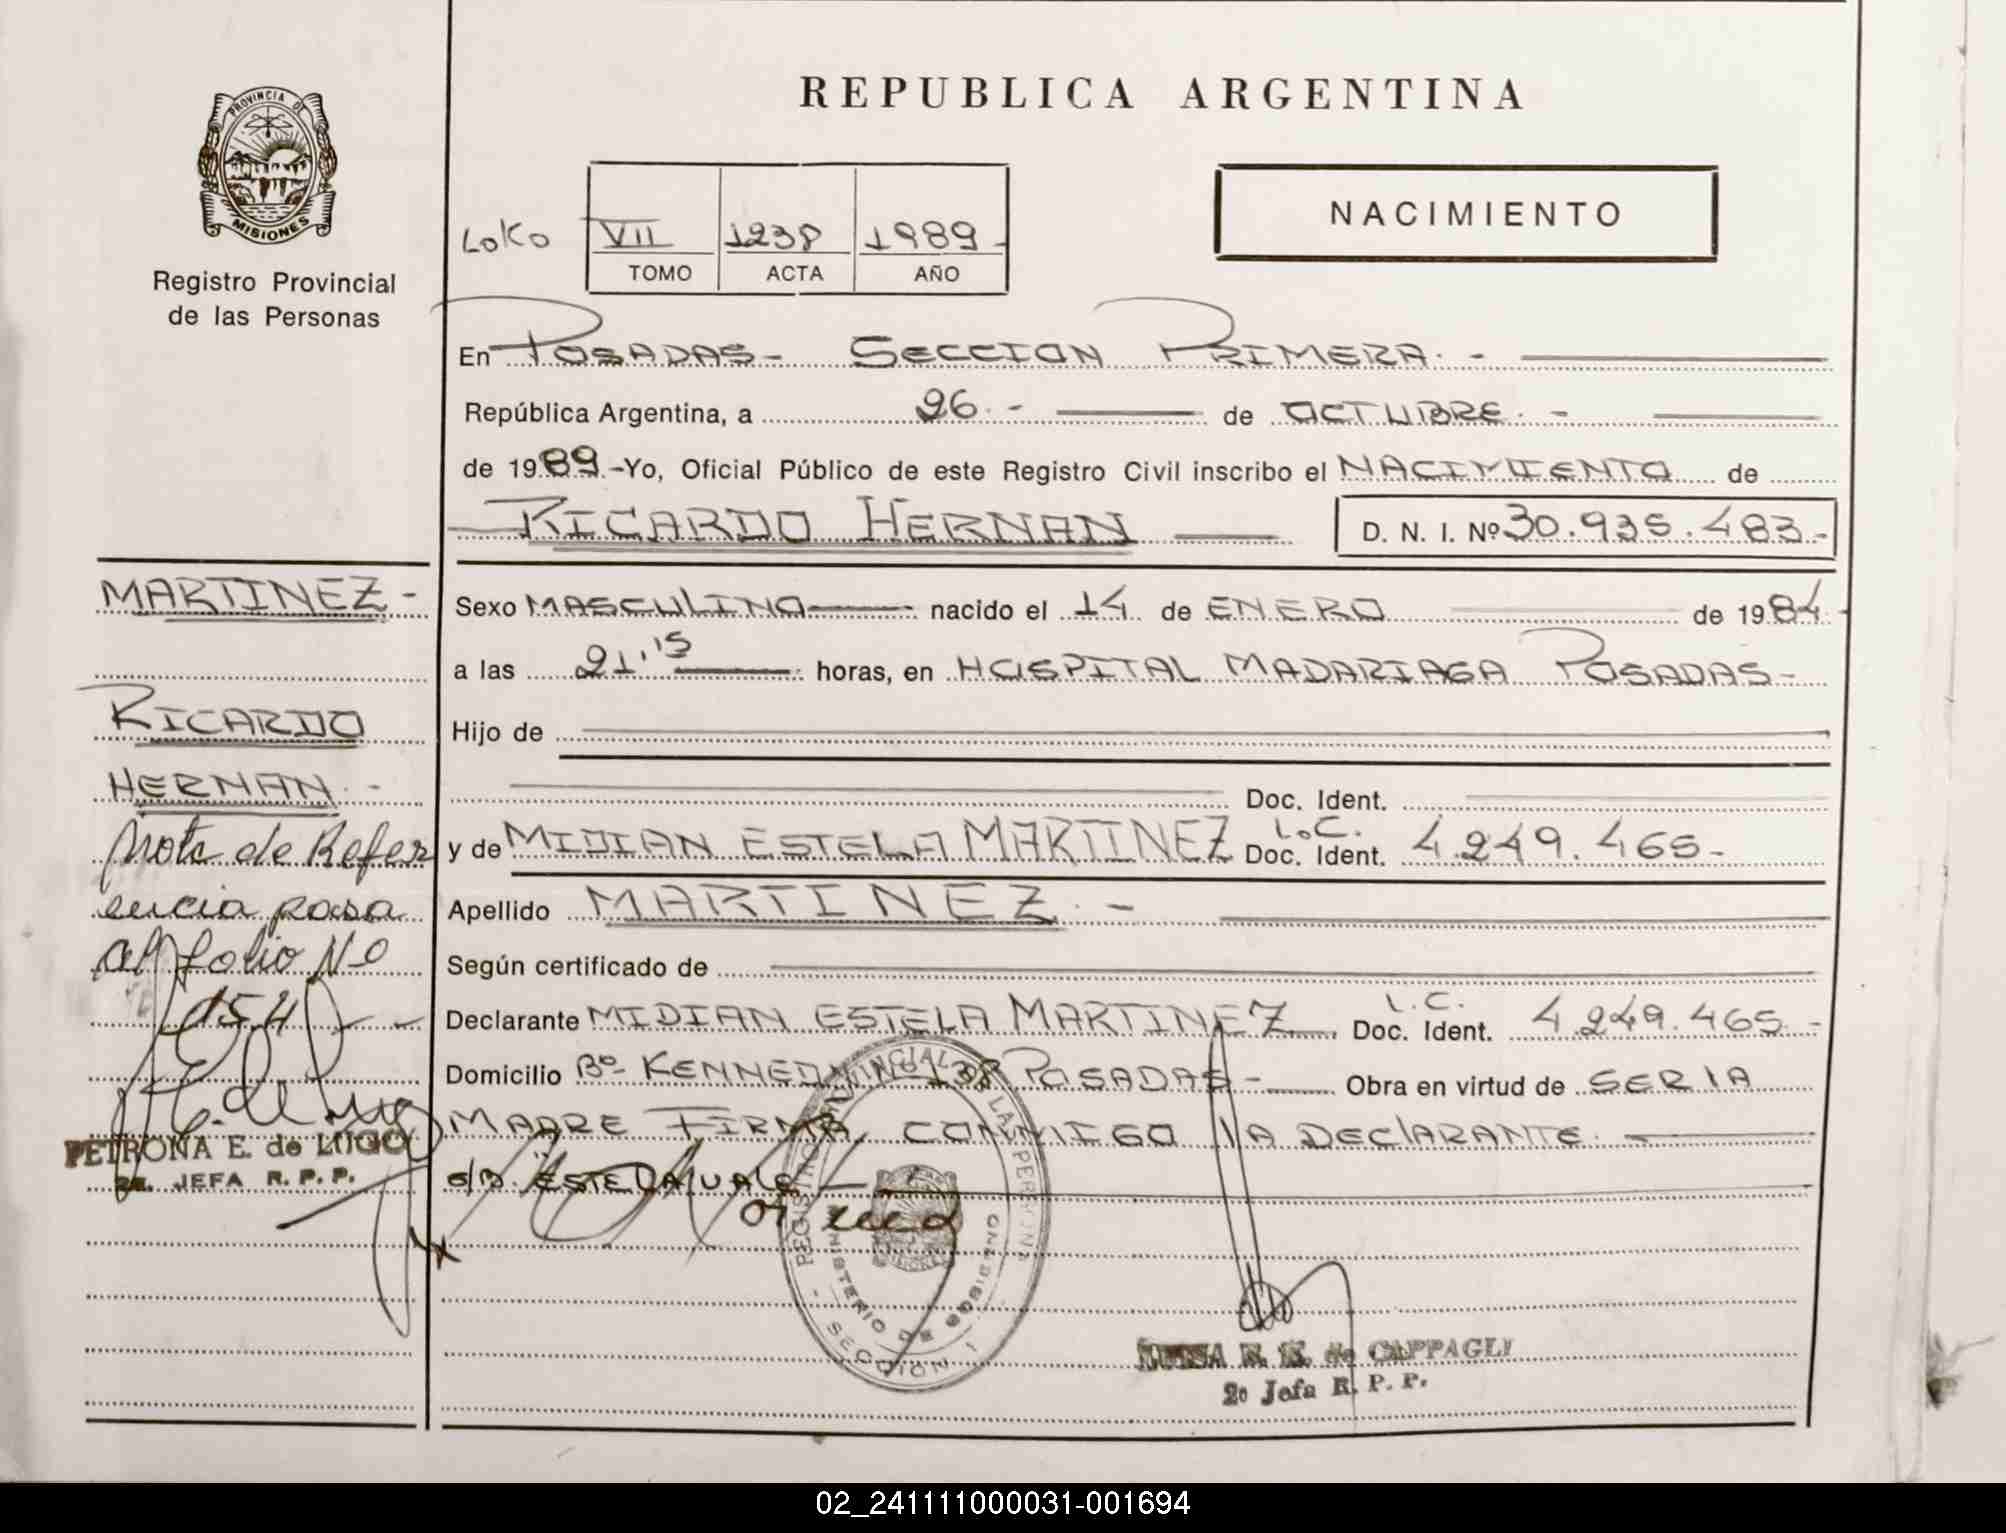 REPUBLICA ARGENTINA
PROVINCIA DE
MISIONES
Registro Provincial
de las Personas
NACIMIENTO
LOKO VII 1238 1989
TOMO ACTA AÑO
En POSADAS- SECCION PRIMERA.-
República Argentina, a 26.- de OCTUBRE.-
de 1989.-Yo, Oficial Público de este Registro Civil inscribo el NACIMIENTO de
RICARDO HERNAN D. N. I. Nº 30.935.483.-
MARTINEZ-
RICARDO
HERNAN.-
Nota de Refer
encia pasa
al folio Nº
154
PETRONA E. de LUGO
2a. JEFA R. P. P.
Sexo MASCULINO nacido el 14 de ENERO de 1984.
a las 21,15 horas, en HOSPITAL MADARIAGA POSADAS-
Hijo de
Doc. Ident.
y de MIDIAN ESTELA MARTINEZ L.C. Doc. Ident. 4.249.465-
Apellido MARTINEZ.-
Según certificado de
Declarante MIDIAN ESTELA MARTINEZ L.C. Doc. Ident. 4.249.465-
Domicilio Bº KENNEDY Nº 138 POSADAS- Obra en virtud de SER LA
MADRE FIRMA CONMIGO LA DECLARANTE.
s/r. ESTELA VALE
REGISTRO PROVINCIAL DE LAS PERSONAS
MINISTERIO DE GOBIERNO
- SECCION 1
de CAPPAGLI
2º Jefa R. P. P.
02_241111000031-001694